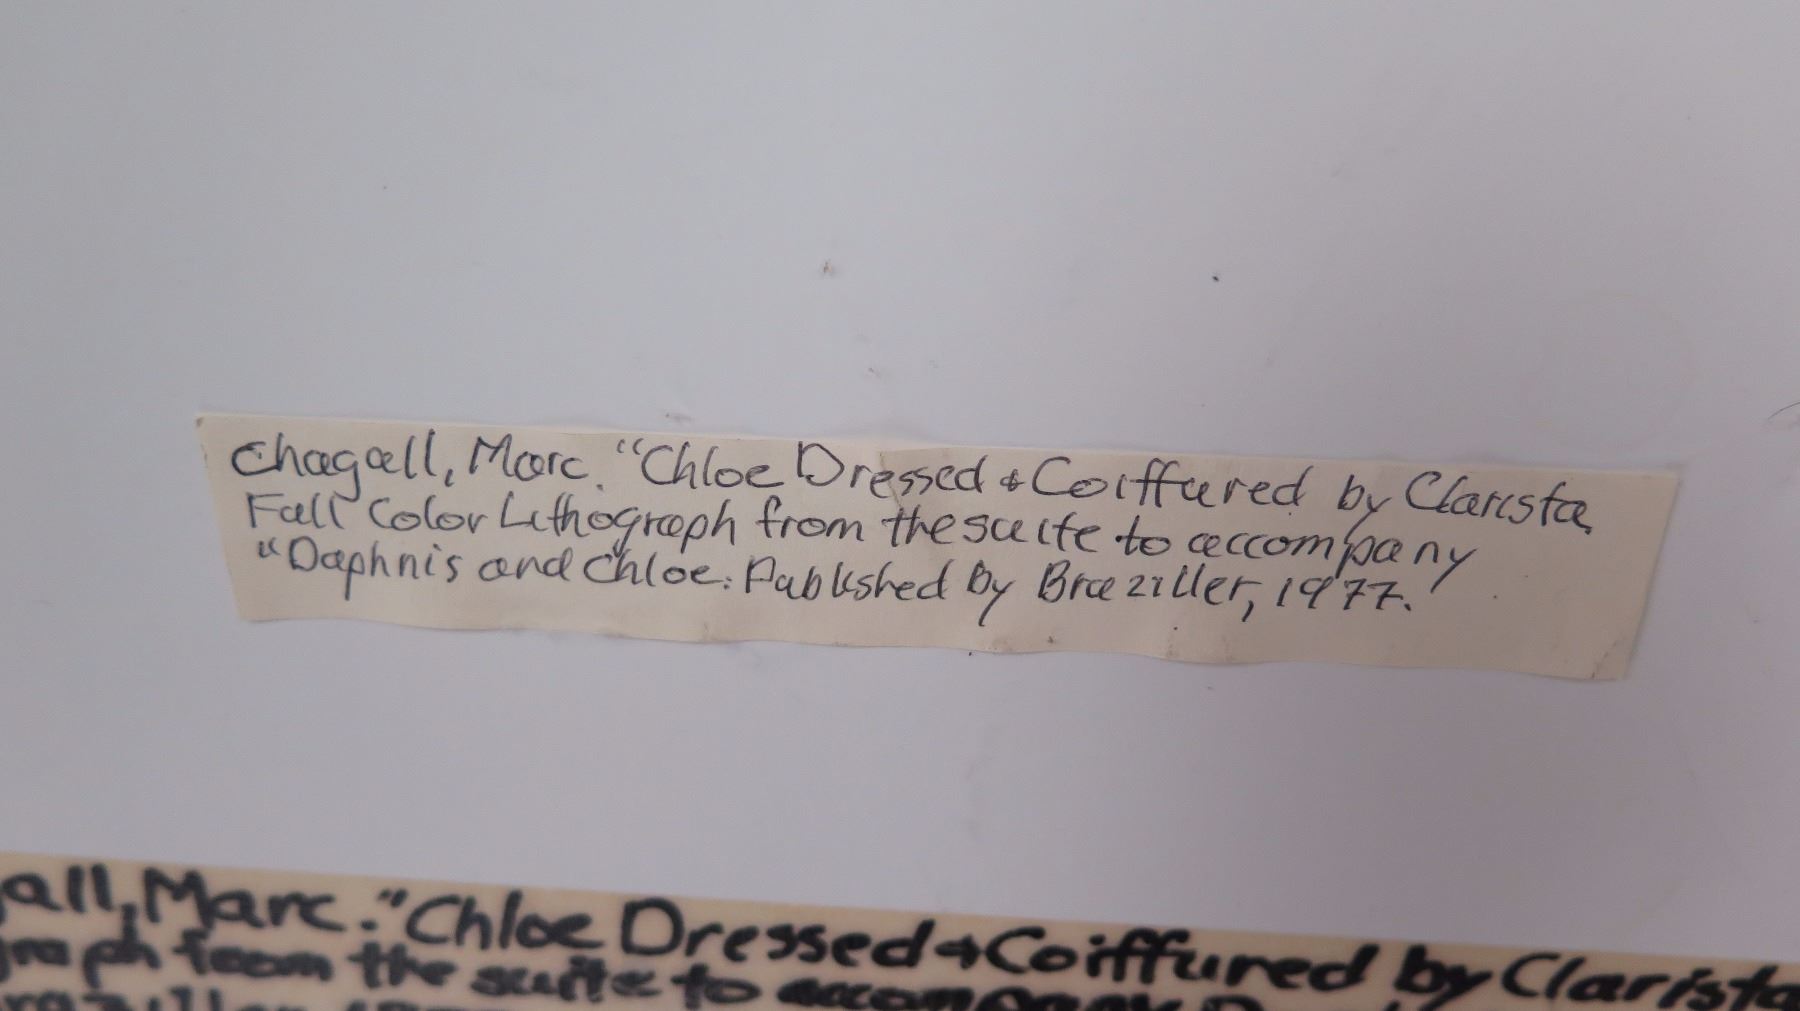 Chagall, Marc. "Chloe Dressed & Coiffured by Clarista
Full Color Lithograph from the suite to accompany
"Daphnis and Chloe. Published by Braziller, 1977.
all, Marc. "Chloe Dressed & Coiffured by Clarista
graph from the suite to accompany